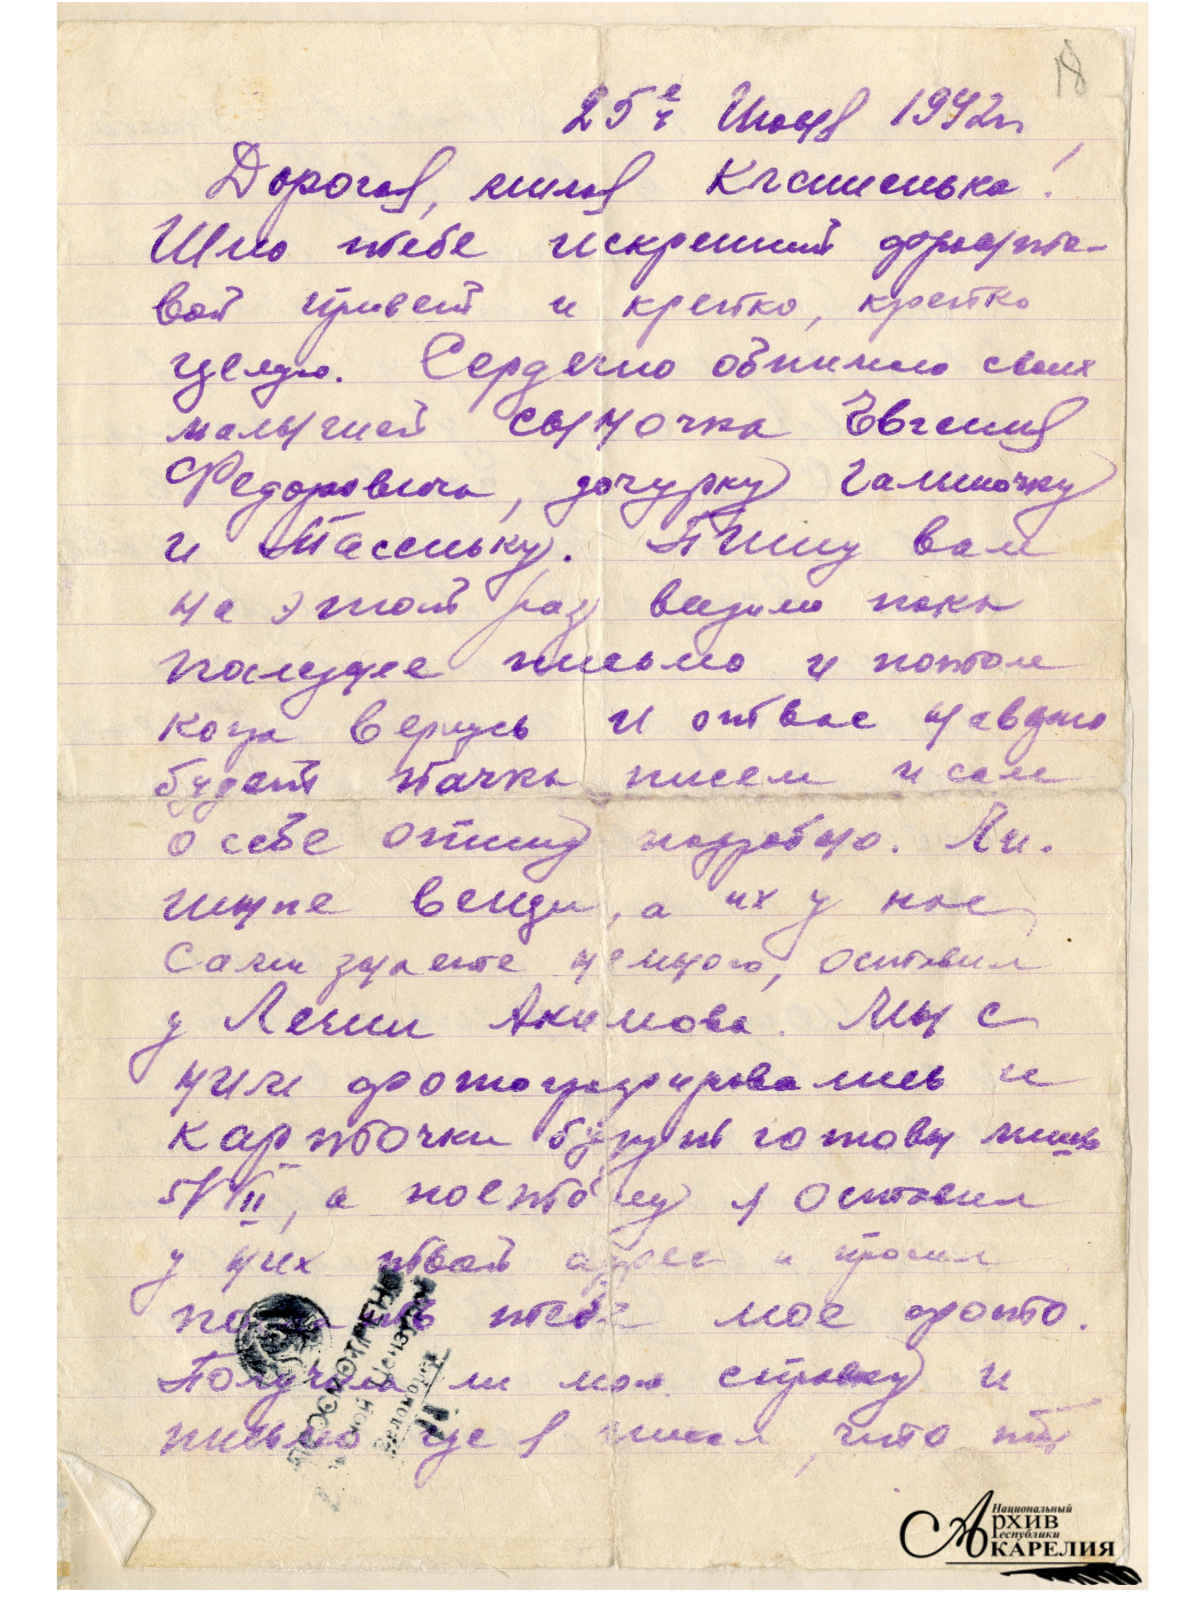 18
25 е/г Июня 1942 г.
Дорогая, милая Ксенинька!
Шлю тебе искренний фронто-
вой привет и крепко, крепко
целую. Сердечно обнимаю своих
малышей сыночка Евгения
Федоровича, дочурку Галиночку
и Тасеньку. Пишу вам
на этот раз видимо пока
последнее письмо и потом
когда вернусь и от вас наверно
будет пачка писем и сам
о себе опишу подробно. Ли-
шние вещи, а их у нас
сами знаете немного, оставил
у Лени Акимова. Мы с
ним фотографировались и
карточки будут готовы лишь
5/VII, а поэтому я оставил
у них твой адрес и просил
послать тебе мое фото.
Получила ли мою справку и
письмо где я писал, что ты
ПРОСМОТРЕНО
Военной Цензурой
Национальный
АРХИВ
Республики
КАРЕЛИЯ